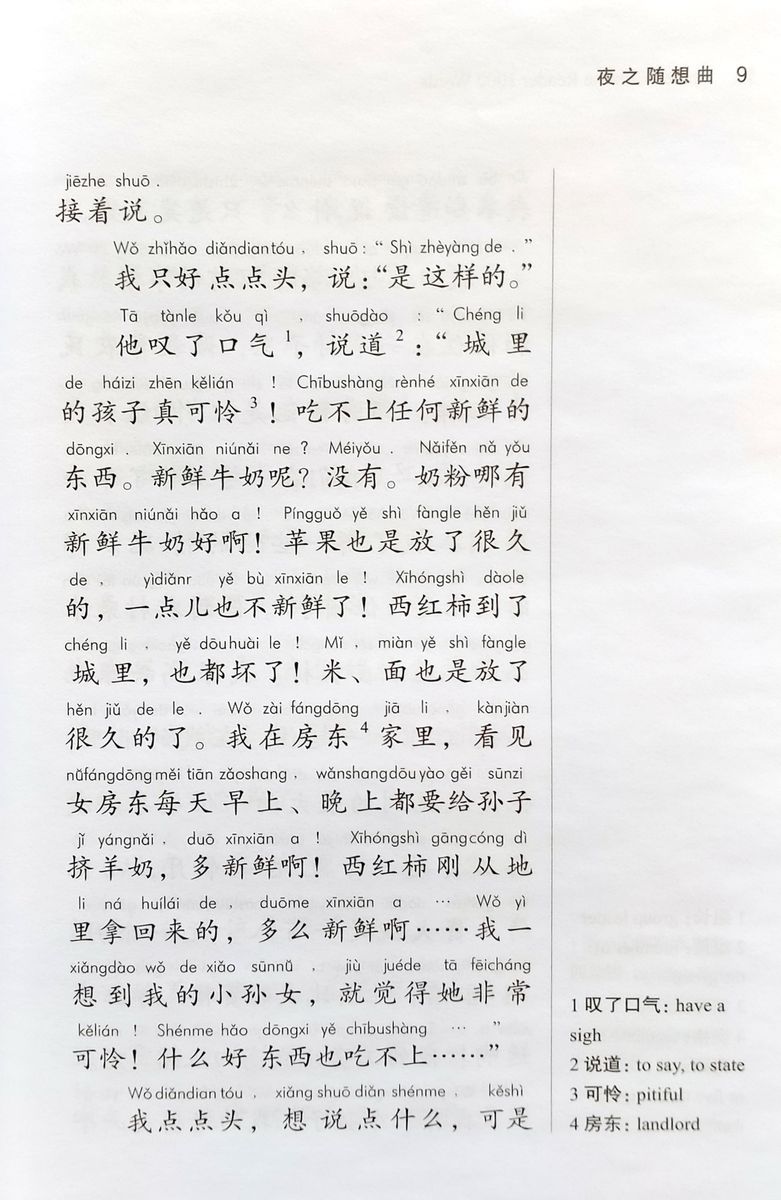 夜之随想曲 9
jiēzhe shuō .
接着说。
Wǒ zhǐhǎo diǎndiantóu , shuō : “ Shì zhèyàng de . ”
我只好点点头，说：“是这样的。”
Tā tànle kǒu qì , shuōdào : “ Chéng li
他叹了口气1，说道2：“城里
de háizi zhēn kělián ! Chībushàng rènhé xīnxiān de
的孩子真可怜3！吃不上任何新鲜的
dōngxi . Xīnxiān niúnǎi ne ? Méiyǒu . Nǎifěn nǎ yǒu
东西。新鲜牛奶呢？没有。奶粉哪有
xīnxiān niúnǎi hǎo a ! Píngguǒ yě shì fàngle hěn jiǔ
新鲜牛奶好啊！苹果也是放了很久
de , yìdiǎnr yě bù xīnxiān le ! Xīhóngshì dàole
的，一点儿也不新鲜了！西红柿到了
chéng li , yě dōu huài le ! Mǐ , miàn yě shì fàngle
城里，也都坏了！米、面也是放了
hěn jiǔ de le . Wǒ zài fángdōng jiā li , kànjiàn
很久的了。我在房东4家里，看见
nǚfángdōng měi tiān zǎoshang , wǎnshang dōu yào gěi sūnzi
女房东每天早上、晚上都要给孙子
jǐ yángnǎi , duō xīnxiān a ! Xīhóngshì gāng cóng dì
挤羊奶，多新鲜啊！西红柿刚从地
li ná huílái de , duōme xīnxiān a … Wǒ yì
里拿回来的，多么新鲜啊……我一
xiǎngdào wǒ de xiǎo sūnnǚ , jiù juéde tā fēicháng
想到我的小孙女，就觉得她非常
kělián ! Shénme hǎo dōngxi yě chībushàng … ”
可怜！什么好东西也吃不上……”
Wǒ diǎndian tóu , xiǎng shuō diǎn shénme , kěshì
我点点头，想说点什么，可是
1 叹了口气：have a
sigh
2 说道：to say, to state
3 可怜：pitiful
4 房东：landlord